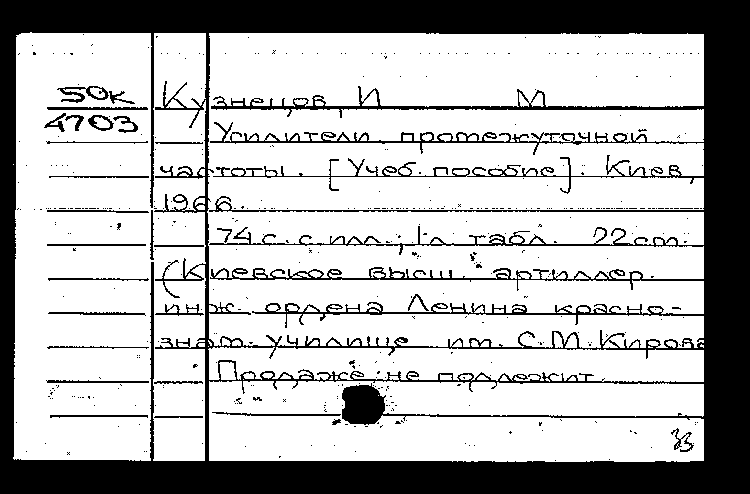 50к Кузнецов, И М
4703 Усилители промежуточной
частоты. [Учеб. пособие]. Киев,
1966.
74 с. с илл.; 1 л. табл. 22 см.
(Киевское высш. артиллер.
инж. ордена Ленина красно-
знам. училище им. С.М. Кирова
Продаже не подлежит
33